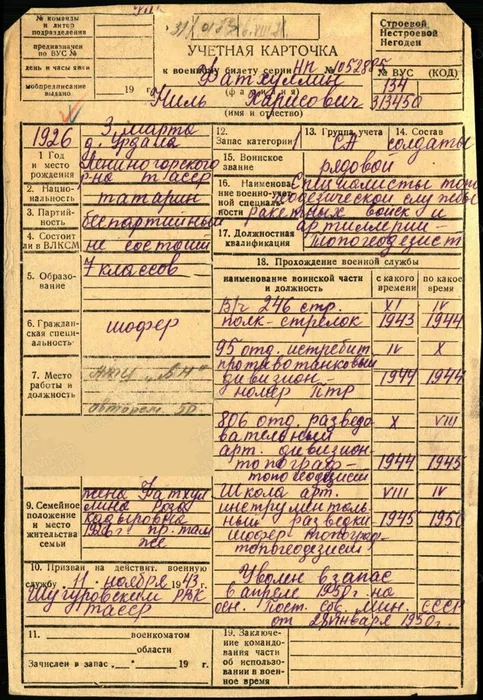 № команды
и литер
подразделения
предназначен
по ВУС №
день и часы явки
мобпредписание
выдано
Строевой
Нестроевой
Негоден
УЧЕТНАЯ КАРТОЧКА
к военному билету серии НП № 1052885
Фатхуллин
(фамилия)
19 г.
Наиль Харисович
(имя и отчество)
№ ВУС (КОД)
134
313450
1926
1 Год и
место
рождения
3 марта
д. Урдала
Лениногорского
р-на ТАССР
2. Нацио-
нальность
татарин
3. Партий-
ность
беспартийный
4. Состоит
ли в ВЛКСМ
не состоит
5. Образо-
вание
7 классов
6. Граждан-
ская специ-
альность
шофер
7. Место
работы и
должность
9. Семейное
положение
и место
жительства
семьи
жена Фатхул
лина Роза
Кадыровна
1926 г. пр. там
же
10. Призван на действит. военную
службу 11 ноября 1943 г.
Шугуровским РВК
ТАССР
11. военкоматом
области
Зачислен в запас „ " 19 г.
12.
Запас категории 1
13. Группа учета
СА
14. Состав
солдаты
15. Воинское
звание
рядовой
16. Наименова-
ние военно-учет-
ной специаль-
ности
Специалисты топо
геодезической службы
ракетных войск и
артиллерии –
17. Должностная
квалификация
топогеодезист
18. Прохождение военной службы
наименование воинской части
и должность
с какого
времени
по какое
время
в/ч 246 стр.
полк – стрелок
XI
1943
IV
1944
95 отд. истребит.
противотанковый
дивизион –
номер ПТР
IV
1944
X
1944
806 отд. разведо
вательный
арт. дивизион –
топограф –
топогеодезист
X
1944
VIII
1945
Школа арт.
инструменталь
ный разведки
шофер топограф
топогеодезист
VIII
1945
IV
1950
Уволен в запас
в апреле 1950 г. на
осн. Пост. Сов. Мин. СССР
от 28 января 1950 г.
19. Заключение
командования
части об
использовании в
военное время